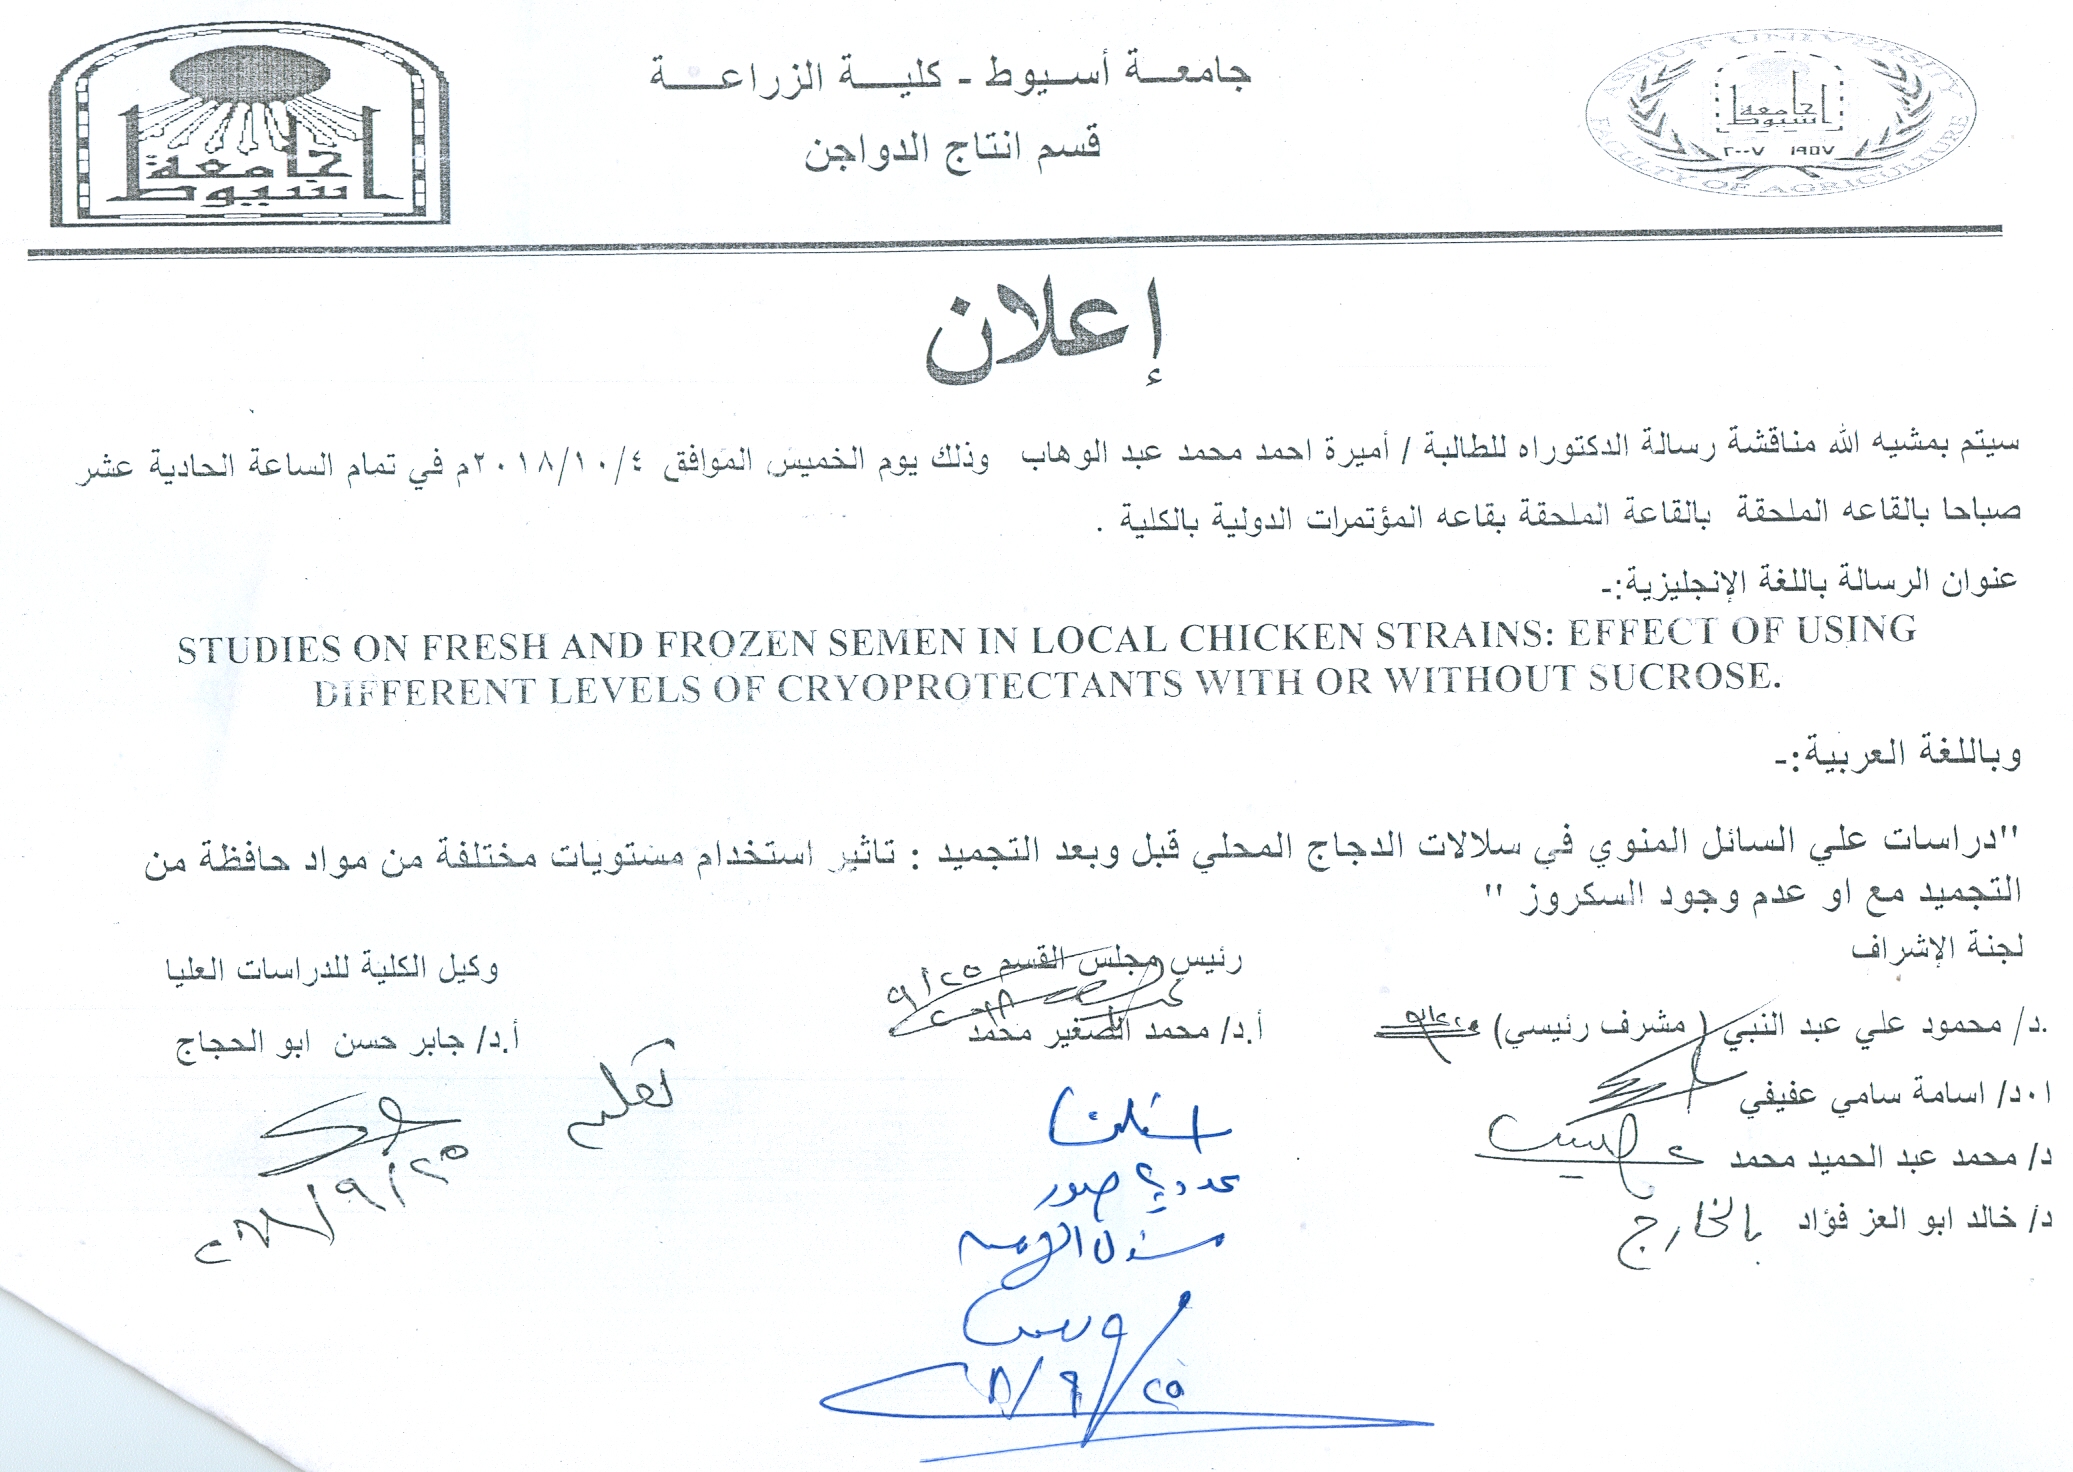 جامعة أسيوط - كلية الزراعة
قسم انتاج الدواجن
جامعة اسيوط
ASSIUT UNIVERSITY
جامعة اسيوط
١٩٥٧ ٢٠٠٧
FACULTY OF AGRICULTURE
إعلان
سيتم بمشيه الله مناقشة رسالة الدكتوراه للطالبة / أميرة احمد محمد عبد الوهاب وذلك يوم الخميس الموافق ٢٠١٨/١٠/٤م في تمام الساعة الحادية عشر
صباحا بالقاعه الملحقة بالقاعة الملحقة بقاعه المؤتمرات الدولية بالكلية .
عنوان الرسالة باللغة الإنجليزية:-
STUDIES ON FRESH AND FROZEN SEMEN IN LOCAL CHICKEN STRAINS: EFFECT OF USING
DIFFERENT LEVELS OF CRYOPROTECTANTS WITH OR WITHOUT SUCROSE.
وباللغة العربية:-
"دراسات علي السائل المنوي في سلالات الدجاج المحلي قبل وبعد التجميد : تاثير استخدام مستويات مختلفة من مواد حافظة من
التجميد مع او عدم وجود السكروز "
لجنة الإشراف
رئيس مجلس القسم
وكيل الكلية للدراسات العليا
٩/٢٥
.د/ محمود علي عبد النبي ( مشرف رئيسي)
أ.د/ محمد الصغير محمد
أ.د/ جابر حسن ابو الحجاج
ا.د/ اسامة سامي عفيفي
د/ محمد عبد الحميد محمد
د/ خالد ابو العز فؤاد بالخارج
٢٠١٨/٩/٢٥
١٨/٩/٢٥